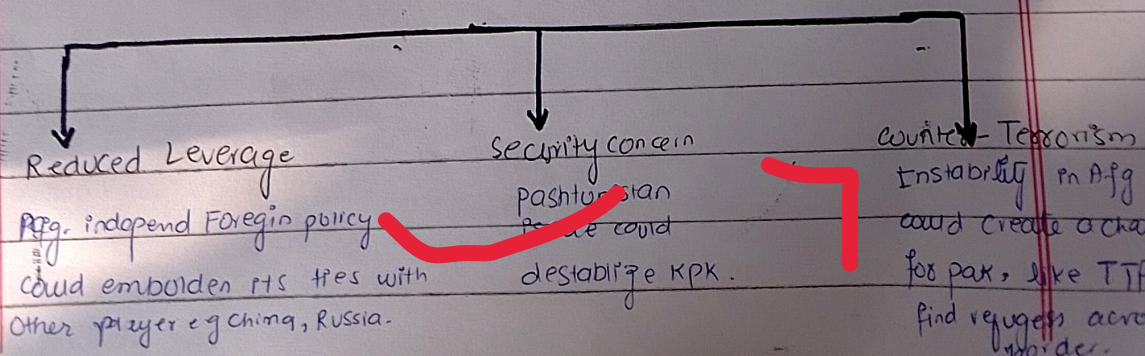 Reduced Leverage
Afg. independ Foregin policy
could embolden its ties with
Other player eg China, Russia.
Security concein
pashtunistan
could
destablize KPK.
Counter - Terrorism
Instability in Afg
could create a cha
for pak, like TTP
find refugess acro
border.